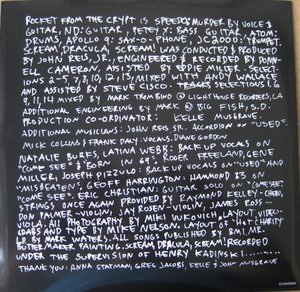 ROCKET FROM THE CRYPT IS SPEEDO MURDER BY VOICE &
GUITAR, ND: GUITAR, PETEY X: BASS GUITAR, ATOM:
DRUMS, APOLLO 9: SAX + PHONE, JC 2000: TRUMPET.
SCREAM, DRACULA, SCREAM! WAS CONDUCTED & PRODUCED
BY JOHN REIS, JR., ENGINEERED & RECORDED BY DONN-
ELL CAMERON, ASSISTED BY EDDIE MILLER. SELECT-
IONS 2-5, 7, 8, 10, 12, 13, MIXED WITH ANDY WALLACE
AND ASSISTED BY STEVE SISCO. TRACKS SELECTIONS 1, 6
9, 11, 14 MIXED BY MARK TROMBINO @ LIGHTHOUSE RECORDERS, LA
ADDITIONAL ENGINEERING BY MARK @ BIG FISH, S.D.
PRODUCTION CO-ORDINATOR: KELLE MUSGRAVE.
ADDITIONAL MUSICIANS: JOHN REIS SR. ACCORDION ON "USED".
MICK COLLINS & FRANK DAILY VOCALS, DIANE GORDON
NATALIE BURKS, LATINA WEBB: BACK UP VOCALS ON
"COME SEE" & "FORD" IN '69", ROGER FREELAND, GENE
MILLER, JOSEPH PIZZULO: BACK UP VOCALS ON "USED" AND
"MISBEATEN", GEOFF HARRINGTON: HAMMOND B3 ON
"COME SEE". ERIC CHRISTIAN: GUITAR SOLO ON "COME SEE".
STRINGS ONCE AGAIN PROVIDED BY RAYMOND KELLEY-CELLO,
DON PALMER-VIOLIN, JAY ROSEN-VIOLIN, JAMES ROSS-
VIOLA. ALL PHOTOGRAPHY BY MIKI VUKOVICH. LAYOUT, VIDEO-
GRABS AND TYPE BY MIKE NELSON. LAYOUT OF THAT CHARITY
LP BY MARK WATERS. ALL SONGS PUBLISHED BY BMI, MR.
BUTTERMAKER PAINTING. SCREAM, DRACULA, SCREAM! RECORDED
UNDER THE SUPERVISION OF HENRY KADINSKI.......
THANK YOU: ANNA STATMAN, GREG JACOBS, KELLE & JOHN MUSGRAVE